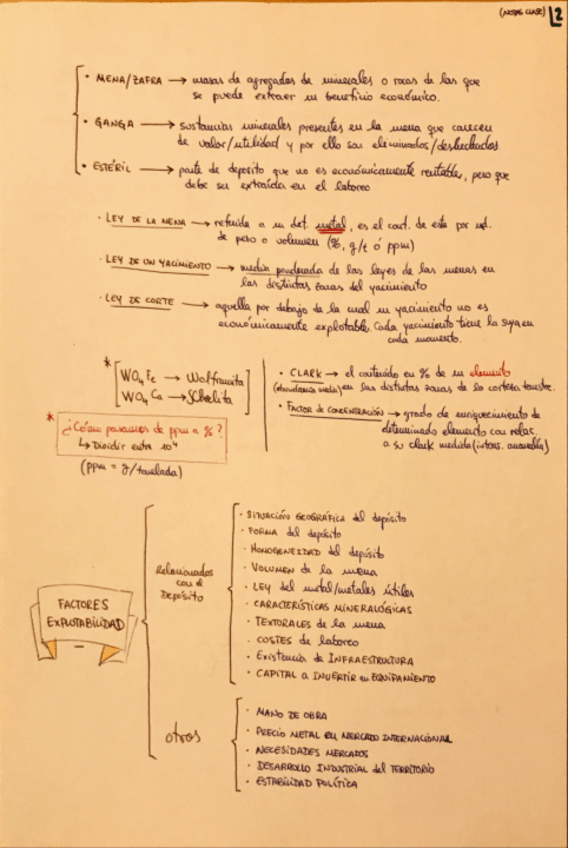 (NOTAS CLASE) 2
· MENA/ZAFRA → masas de agregados de minerales o rocas de las que
se puede extraer un beneficio económico.
· GANGA → sustancias minerales presentes en la mena que carecen
de valor/utilidad y por ello son eliminados/deshechados
· ESTÉRIL → parte de depósito que no es económicamente rentable, pero que
debe ser extraída en el laboreo
· LEY DE LA MENA → referida a un det. metal, es el cont. de este por ud.
de peso o volumen (%, g/t ó ppm)
· LEY DE UN YACIMIENTO → media ponderada de las leyes de las menas en
las distintas zonas del yacimiento
· LEY DE CORTE → aquella por debajo de la cual un yacimiento no es
económicamente explotable. Cada yacimiento tiene la suya en
cada momento.
* WO4 Fe → Wolframita
WO4 Ca → Scheelita
* ¿Cómo pasamos de ppm a %?
↳ Dividir entre 10⁴
(ppm = g/tonelada)
· CLARK → el contenido en % de un elemento
(abundancia media) en las distintas zonas de la corteza terrestre.
· FACTOR DE CONCENTRACIÓN → grado de enriquecimiento de
determinado elemento con relac.
a su clark medida (intens. anomalía)
FACTORES
EXPLOTABILIDAD
Relacionados
con el
Depósito
· SITUACIÓN GEOGRÁFICA del depósito
· FORMA del depósito
· HOMOGENEIDAD del depósito
· VOLUMEN de la mena
· LEY del metal/metales útiles
· CARACTERÍSTICAS MINERALÓGICAS
· TEXTORALES de la mena
· COSTES de laboreo
· Existencia de INFRAESTRUCTURA
· CAPITAL a INVERTIR en EQUIPAMIENTO
otros
· MANO DE OBRA
· PRECIO METAL EN MERCADO INTERNACIONAL
· NECESIDADES MERCADOS
· DESARROLLO INDUSTRIAL del TERRITORIO
· ESTABILIDAD POLÍTICA